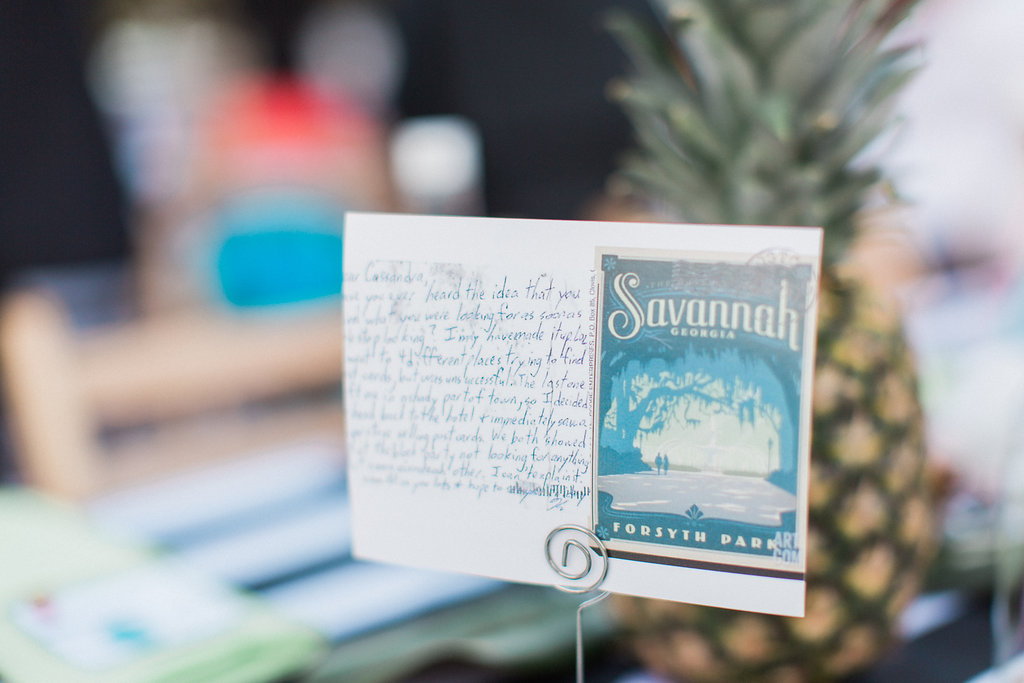 ar Cassandra,
ve you ever heard the idea that you
what you were looking for as soon as
stop looking? I may have made it up, but
went to 4 different places trying to find
cards, but was unsuccessful. The last one
me in a shady part of town, so I decided
head back to the hotel + immediately saw a
store selling postcards. We both showed
the block party not looking for anything
other. I can't explain it.
you lots + hope to
P.O. Box
Savannah
GEORGIA
FORSYTH PARK
ART
COM